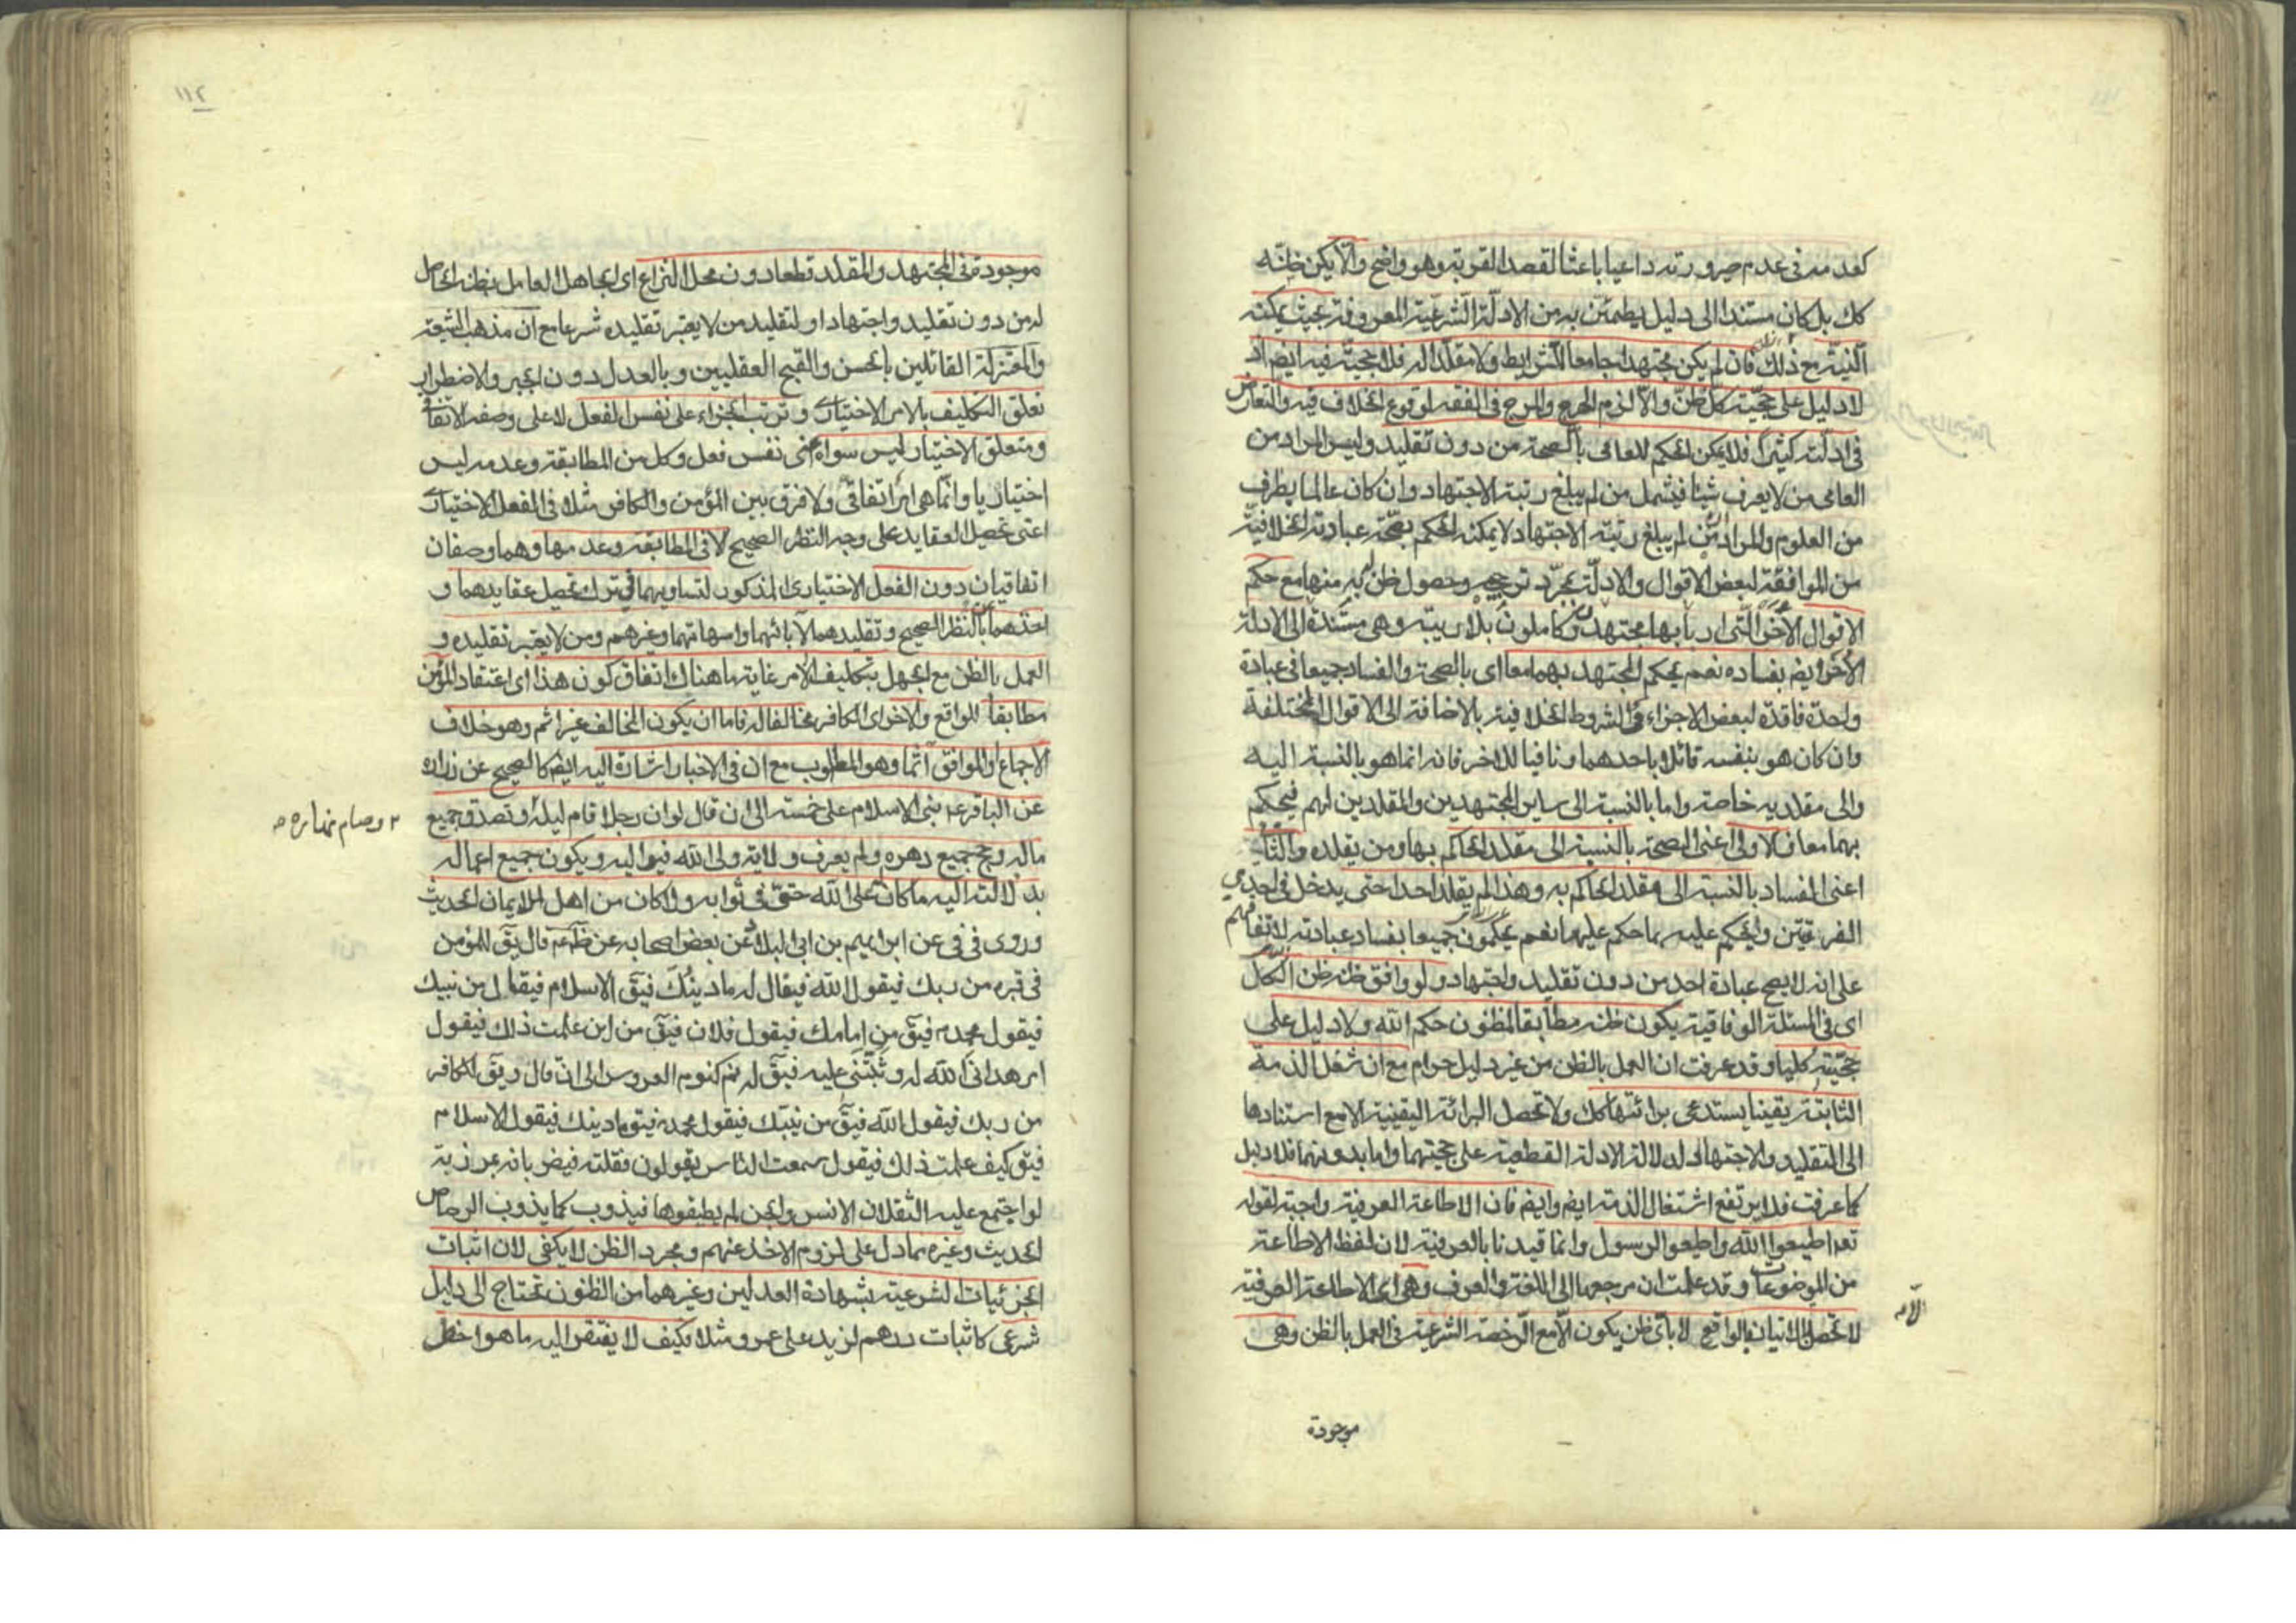 ١١١
كعدمه في عدم صيرورته داعيا باعثا لقصد القربة وهو واضح والا يكن ظنه
كك بل كان مستندا الى دليل يطمئن به من الادلة الشرعية المعروفة بحيث يمكنه
النية مع ذلك فان لم يكن مجتهدا جامعا للشرايط ولا مقلدا له فلا حجية فيه ايضا اذ
لا دليل على حجية كل ظن والا لزم الهرج والمرج في الفقه لوقوع الخلاف فيه والتعارض
في ادلته كثيرا فلا يمكن الحكم للعامي بالصحة من دون تقليد وليس المراد من
العامي من لا يعرف شيئا فيشمل من لم يبلغ رتبة الاجتهاد وان كان عالما بطرف
من العلوم والمراد ان من لم يبلغ رتبة الاجتهاد لا يمكنه الحكم بصحة عبادته الخلافية
من الموافقة لبعض الاقوال والادلة بمجرد ترجيح وحصول ظن له منها مع حكم
الاقوال الاخر التي اربابها مجتهدون كاملون بلا ريبة وهي مستندة الى الادلة
الاخر ايضا بفساده نعم يحكم المجتهد بهما معا اي بالصحة والفساد جميعا في عبادة
واحدة فاقدة لبعض الاجزاء والشروط الخلافية بالاضافة الى الاقوال المختلفة
وان كان هو بنفسه قائلا باحدهما ونافيا للاخر فانه انما هو بالنسبة اليه
والى مقلديه خاصة واما بالنسبة الى ساير المجتهدين والمقلدين لهم فيحكم
بهما معا فالاولى اعني الصحة بالنسبة الى مقلد الحاكم بها ومن يقلده والثاني
اعني الفساد بالنسبة الى مقلد الحاكم به وهذا لم يقلد احدا حتى يدخل في احدى
الفرقتين ويحكم عليه بما حكم عليهما نعم يحكمون جميعا بفساد عبادته لاتفاقهم
على انه لا يصح عبادة احد من دون تقليد واجتهاد ولو وافق ظنه ظن الكل
اي في المسئلة الوفاقية يكون ظنه مطابقا لمظنون حكم الله ولا دليل على
حجيته كليا وقد عرفت ان العمل بالظن من غير دليل حرام مع ان شغل الذمة
الثابتة يقينا يستدعي برائتها كك ولا تحصل البرائة اليقينية الا مع استنادها
الى التقليد والاجتهاد لدلالة الادلة القطعية على حجيتهما واما بدونهما فلا دليل
كما عرفت فلا يرتفع اشتغال الذمة ايضا وايضا فان الاطاعة العرفية واجبة لقوله
تعه اطيعوا الله واطيعوا الرسول وانما قيدنا بالعرفية لان لفظ الاطاعة
من الموضوعات وقد علمت ان مرجعها الى اللغة والعرف وهي اي الاطاعة العرفية
لا تحصل الا باتيان الواقع لا باي ظن يكون الا مع الرخصة الشرعية في العمل بالظن وهي
موجودة
١١٢
موجودة في المجتهد والمقلد قطعا دون محل النزاع اي الجاهل العامل بظنه الحاصل
له من دون تقليد واجتهاد او لتقليد من لا يعتبر تقليده شرعا مع ان مذهب الشيعة
والمعتزلة القائلين بالحسن والقبح العقليين وبالعدل دون الجبر والاضطرار
تعلق التكليف بالامر الاختياري وترتب الجزاء على نفس الفعل لا على وصفه الاتفاقي
ومتعلق الاختيار ليس سواه اعني نفس فعل وكل من المطابقة وعدمه ليس
اختياريا وانما هي امر اتفاقي ولا فرق بين المؤمن والكافر مثلا في الفعل الاختياري
اعني تحصيل العقايد على وجه النظر الصحيح لا في المطابقة وعدمها وهما وصفان
اتفاقيان دون الفعل الاختياري المذكور لتساويهما في ترك تحصيل عقايدهما و
اخذهما بالنظر الصحيح وتقليدهما لآبائهما وامهاتهما وغيرهم ومن لا يعتبر تقليده و
العمل بالظن مع الجهل بتكليف الامر غاية ما هناك اتفاق كون هذا اي اعتقاد المؤمن
مطابقا للواقع والاخر اي الكافر مخالفا له فاما ان يكون المخالف غير اثم وهو خلاف
الاجماع او الموافق آثما وهو المطلوب مع ان في الاخبار اشارة اليه ايضا كالصحيح عن زرارة
عن الباقر ع بني الاسلام على خمسة الى ان قال لو ان رجلا قام ليله وتصدق جميع
٢ وصام نهاره ص
ماله وحج جميع دهره ولم يعرف ولاية ولي الله فيواليه ويكون جميع اعماله
بدلالته اليه ما كان على الله حق في ثوابه ولا كان من اهل الايمان الحديث
وروى في في عن ابراهيم بن ابي البلاد عن بعض اصحابه عن ظم ع قال يق للمؤمن
في قبره من ربك فيقول الله فيقال له ما دينك فيق الاسلام فيقال من نبيك
فيقول محمد ص فيق من امامك فيقول فلان فيق من اين علمت ذلك فيقول
امر هداني الله له وثبتني عليه فيق له نم كنوم العروس الى ان قال ويق للكافر
من ربك فيقول الله فيق من نبيك فيقول محمد ص فيق ما دينك فيقول الاسلام
فيق كيف علمت ذلك فيقول سمعت الناس يقولون فقلته فيضربانه بمرزبة
لو اجتمع عليه الثقلان الانس والجن لم يطيقوها فيذوب كما يذوب الرصاص
الحديث وغيره مما دل على لزوم الاخذ عنهم ومجرد الظن لا يكفي لان اثبات
الجزئيات الشرعية بشهادة العدلين وغيرهما من الظنون تحتاج الى دليل
شرعي كاثبات درهم لزيد على عمرو مثلا فكيف لا يفتقر اليه ما هو اخطر